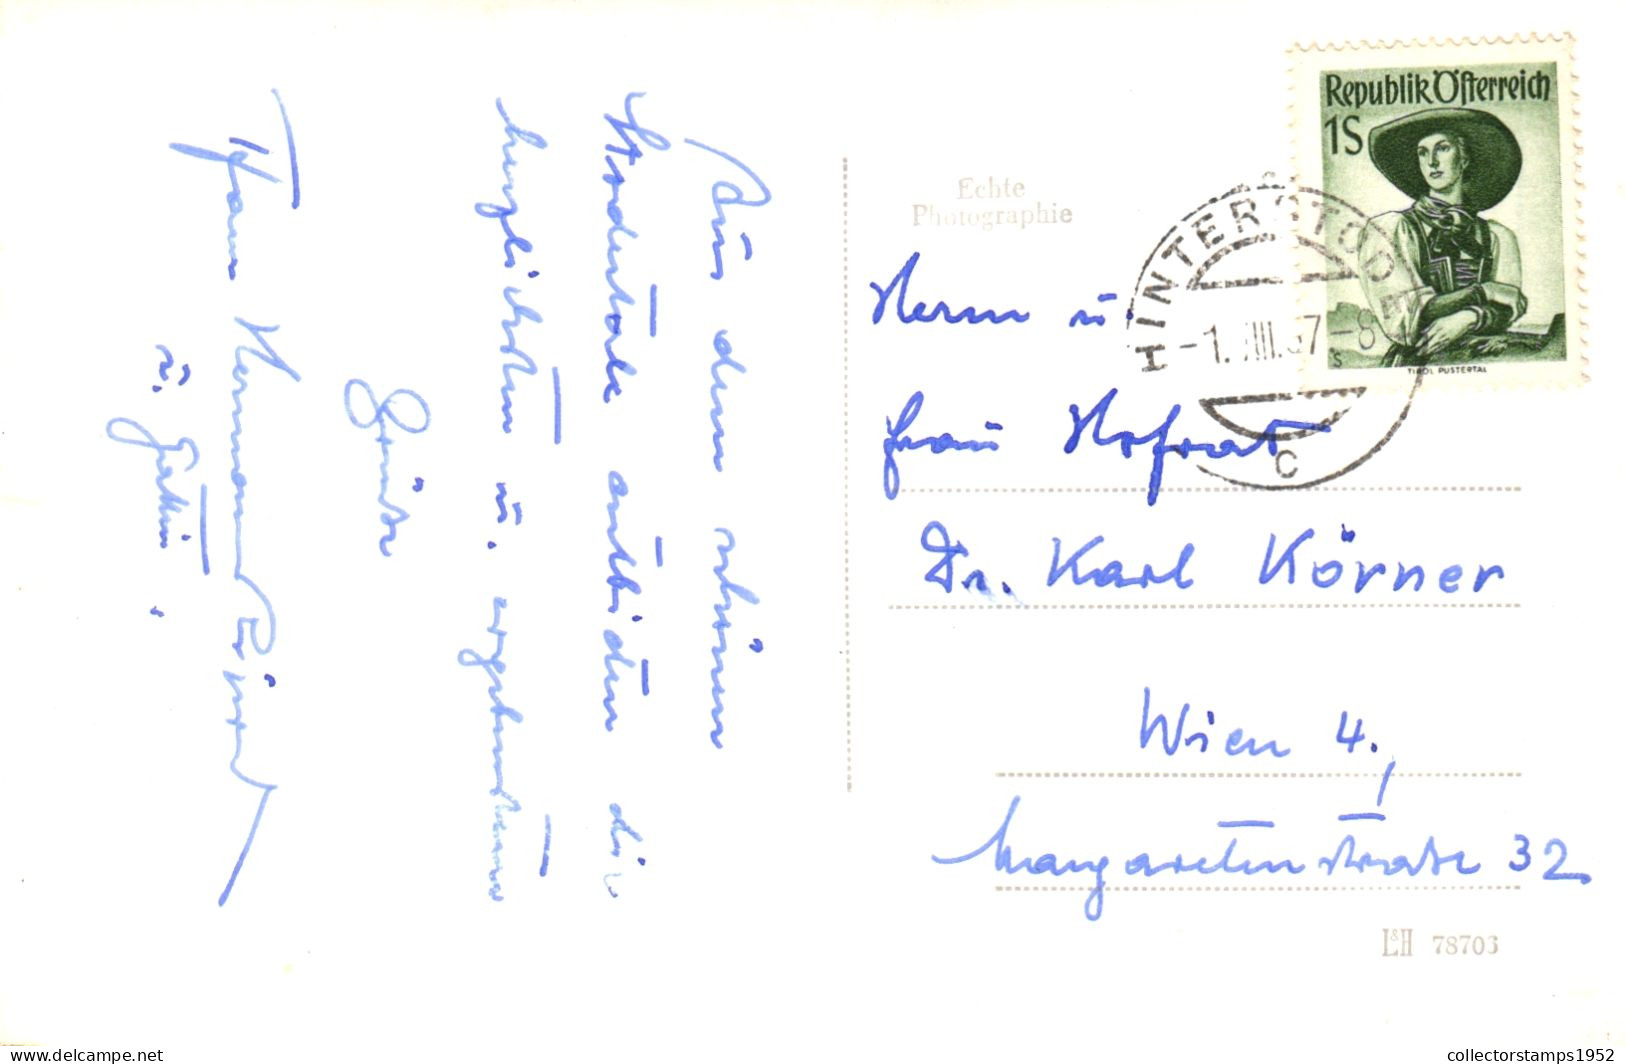 Aus dem schönen
Stodertale entbieten die
herzlichsten u. ergebensten
Grüße
Hermann
u. Gattin.
Echte
Photographie
Republik Österreich
1S
TIROL PUSTERTAL
HINTERSTODER
-1.VIII.57-8
c
Herrn u.
Frau Hofrat
Dr. Karl Körner
Wien 4.,
Margaretenstraße 32
L&H 78703
collectorstamps1952